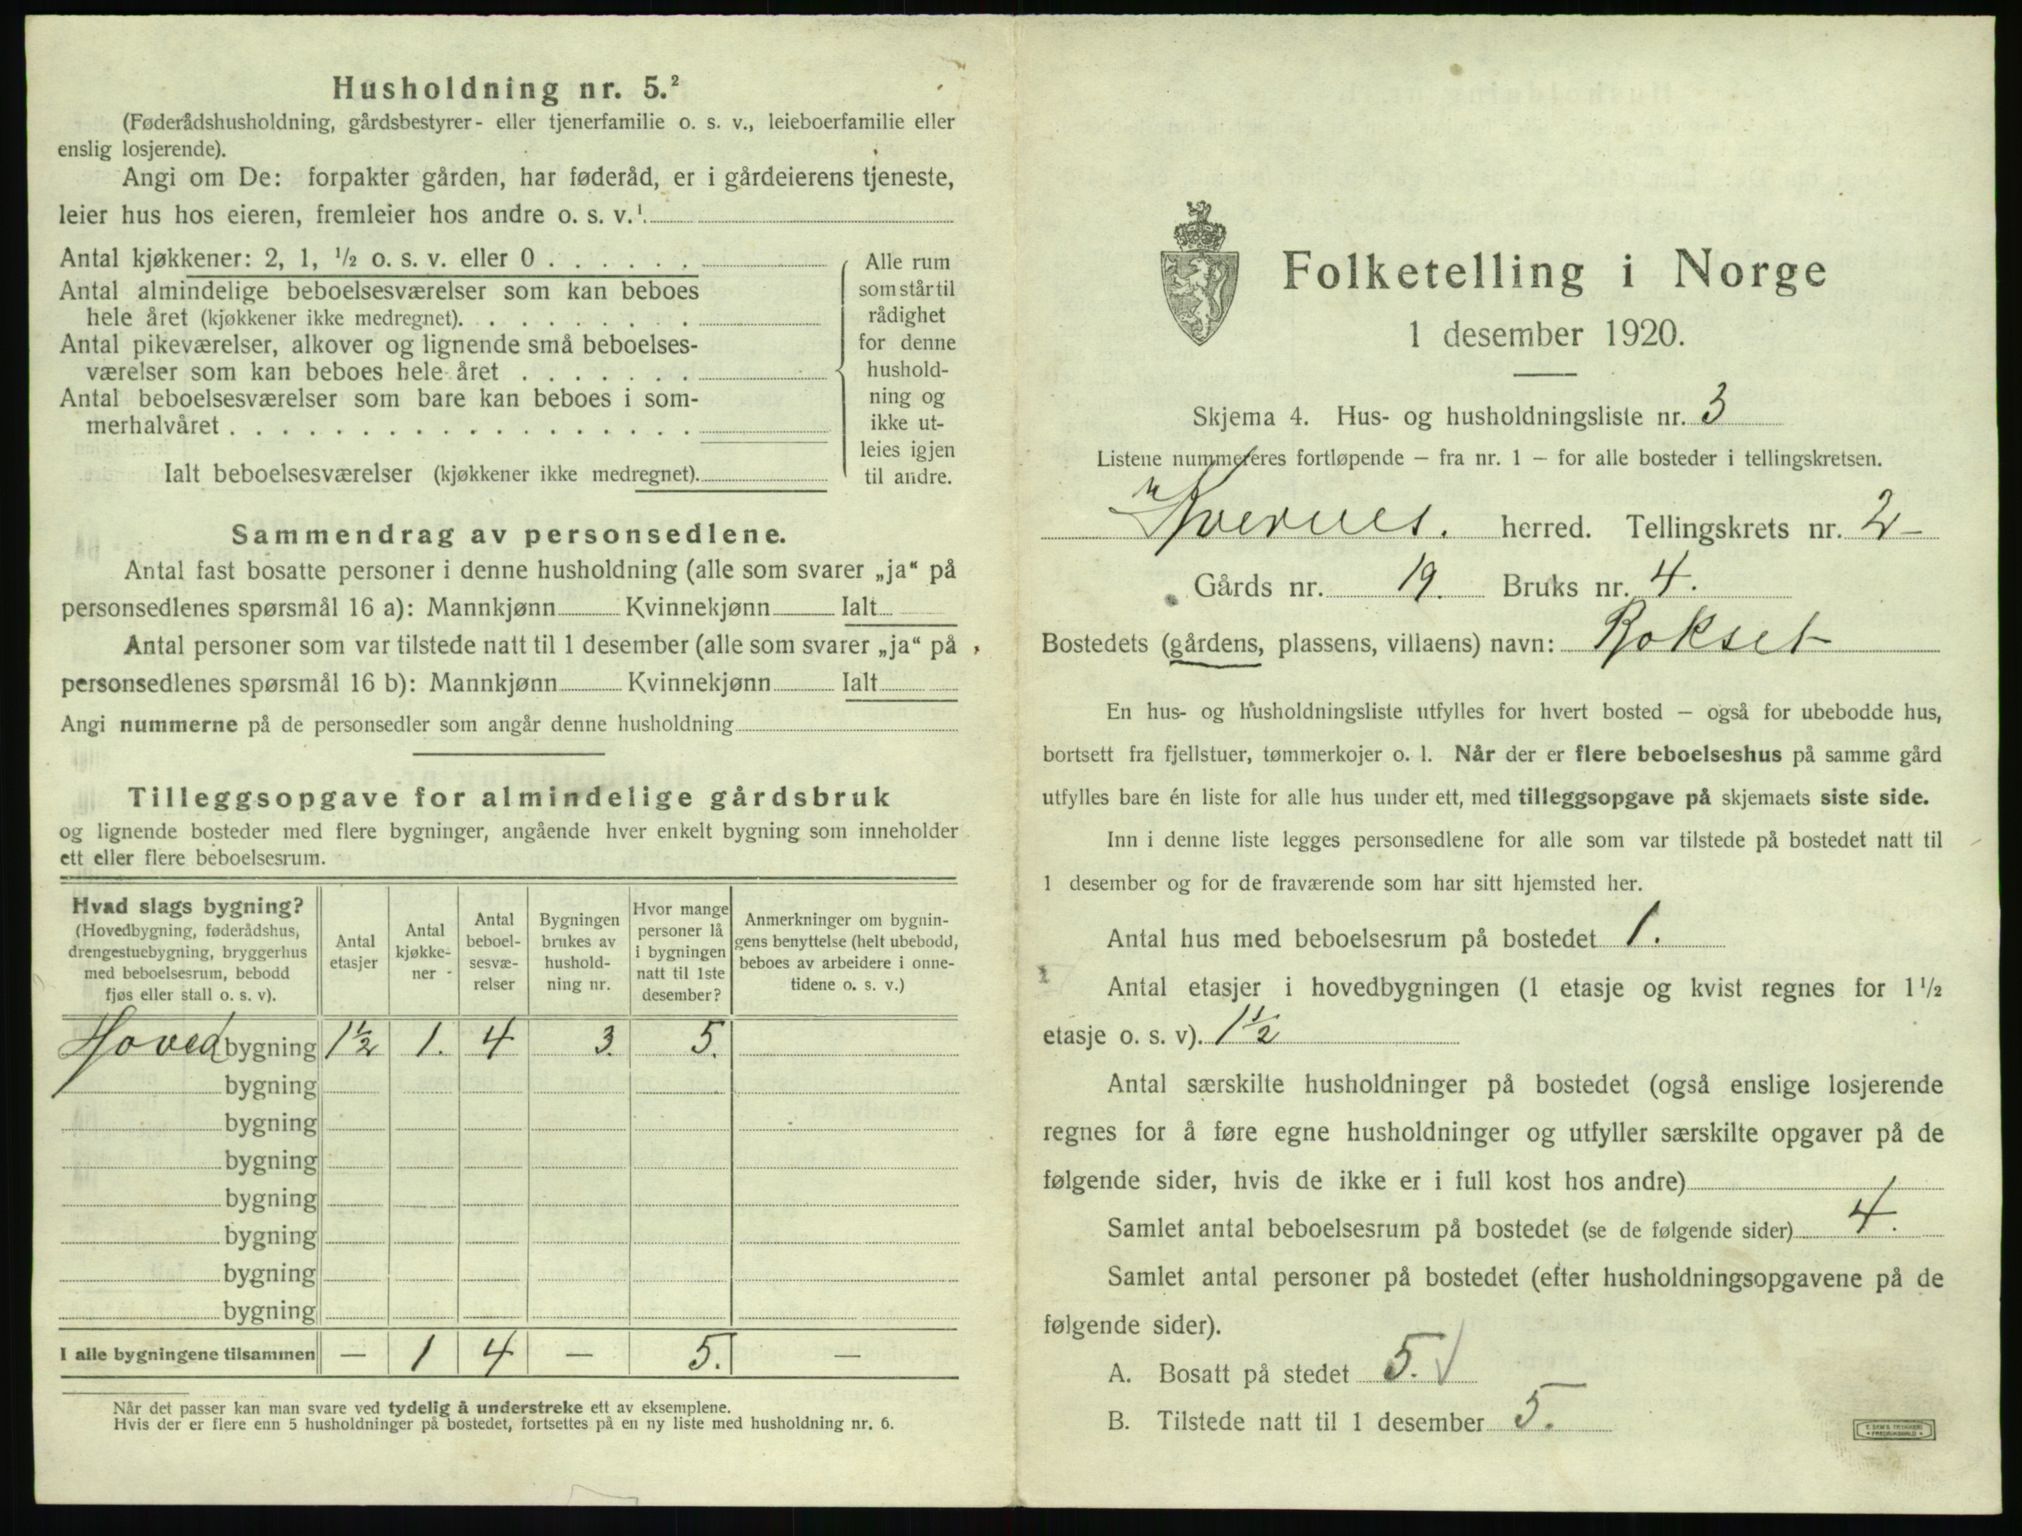 Husholdning nr. 5.²
(Føderådshusholdning, gårdsbestyrer- eller tjenerfamilie o. s. v., leieboerfamilie eller
enslig losjerende).
Angi om De: forpakter gården, har føderåd, er i gårdeierens tjeneste,
leier hus hos eieren, fremleier hos andre o. s. v.¹
Antal kjøkkener: 2, 1, ½ o. s. v. eller 0 . . . . . .
Antal almindelige beboelsesværelser som kan beboes
hele året (kjøkkener ikke medregnet). . . . . . . . .
Antal pikeværelser, alkover og lignende små beboelses-
værelser som kan beboes hele året . . . . . . .
Antal beboelsesværelser som bare kan beboes i som-
merhalvåret . . . . . . . . . . . . . . . . . .
Ialt beboelsesværelser (kjøkkener ikke medregnet).
Alle rum
som står til
rådighet
for denne
hushold-
ning og
ikke ut-
leies igjen
til andre.
Sammendrag av personsedlene.
Antal fast bosatte personer i denne husholdning (alle som svarer „ja“ på
personsedlenes spørsmål 16 a): Mannkjønn Kvinnekjønn Ialt
Antal personer som var tilstede natt til 1 desember (alle som svarer „ja“ på
personsedlenes spørsmål 16 b): Mannkjønn Kvinnekjønn Ialt
Angi nummerne på de personsedler som angår denne husholdning
Tilleggsopgave for almindelige gårdsbruk
og lignende bosteder med flere bygninger, angående hver enkelt bygning som inneholder
ett eller flere beboelsesrum.
Hvad slags bygning?
(Hovedbygning, føderådshus,
drengestuebygning, bryggerhus
med beboelsesrum, bebodd
fjøs eller stall o. s. v).
Antal
etasjer
Antal
kjøkke-
ner
Antal
beboel-
sesvæ-
relser
Bygningen
brukes av
hushold-
ning nr.
Hvor mange
personer lå
i bygningen
natt til 1ste
desember?
Anmerkninger om bygnin-
gens benyttelse (helt ubebodd,
beboes av arbeidere i onne-
tidene o. s. v.)
Hoved bygning 1½ 1. 4 3. 5.
bygning
bygning
bygning
bygning
bygning
bygning
bygning
I alle bygningene tilsammen — 1 4 — 5. —
Når det passer kan man svare ved tydelig å understreke ett av eksemplene.
Hvis der er flere enn 5 husholdninger på bostedet, fortsettes på en ny liste med husholdning nr. 6.
Folketelling i Norge
1 desember 1920.
Skjema 4. Hus- og husholdningsliste nr. 3
Listene nummereres fortløpende – fra nr. 1 – for alle bosteder i tellingskretsen.
Kvernes. herred. Tellingskrets nr. 2
Gårds nr. 19. Bruks nr. 4.
Bostedets (gårdens, plassens, villaens) navn: Rokset
En hus- og husholdningsliste utfylles for hvert bosted – også for ubebodde hus,
bortsett fra fjellstuer, tømmerkojer o. l. Når der er flere beboelseshus på samme gård
utfylles bare én liste for alle hus under ett, med tilleggsopgave på skjemaets siste side.
Inn i denne liste legges personsedlene for alle som var tilstede på bostedet natt til
1 desember og for de fraværende som har sitt hjemsted her.
Antal hus med beboelsesrum på bostedet 1.
Antal etasjer i hovedbygningen (1 etasje og kvist regnes for 1½
etasje o. s. v). 1½
Antal særskilte husholdninger på bostedet (også enslige losjerende
regnes for å føre egne husholdninger og utfyller særskilte opgaver på de
følgende sider, hvis de ikke er i full kost hos andre)
Samlet antal beboelsesrum på bostedet (se de følgende sider) 4.
Samlet antal personer på bostedet (efter husholdningsopgavene på de
følgende sider).
A. Bosatt på stedet 5. √
B. Tilstede natt til 1 desember 5.